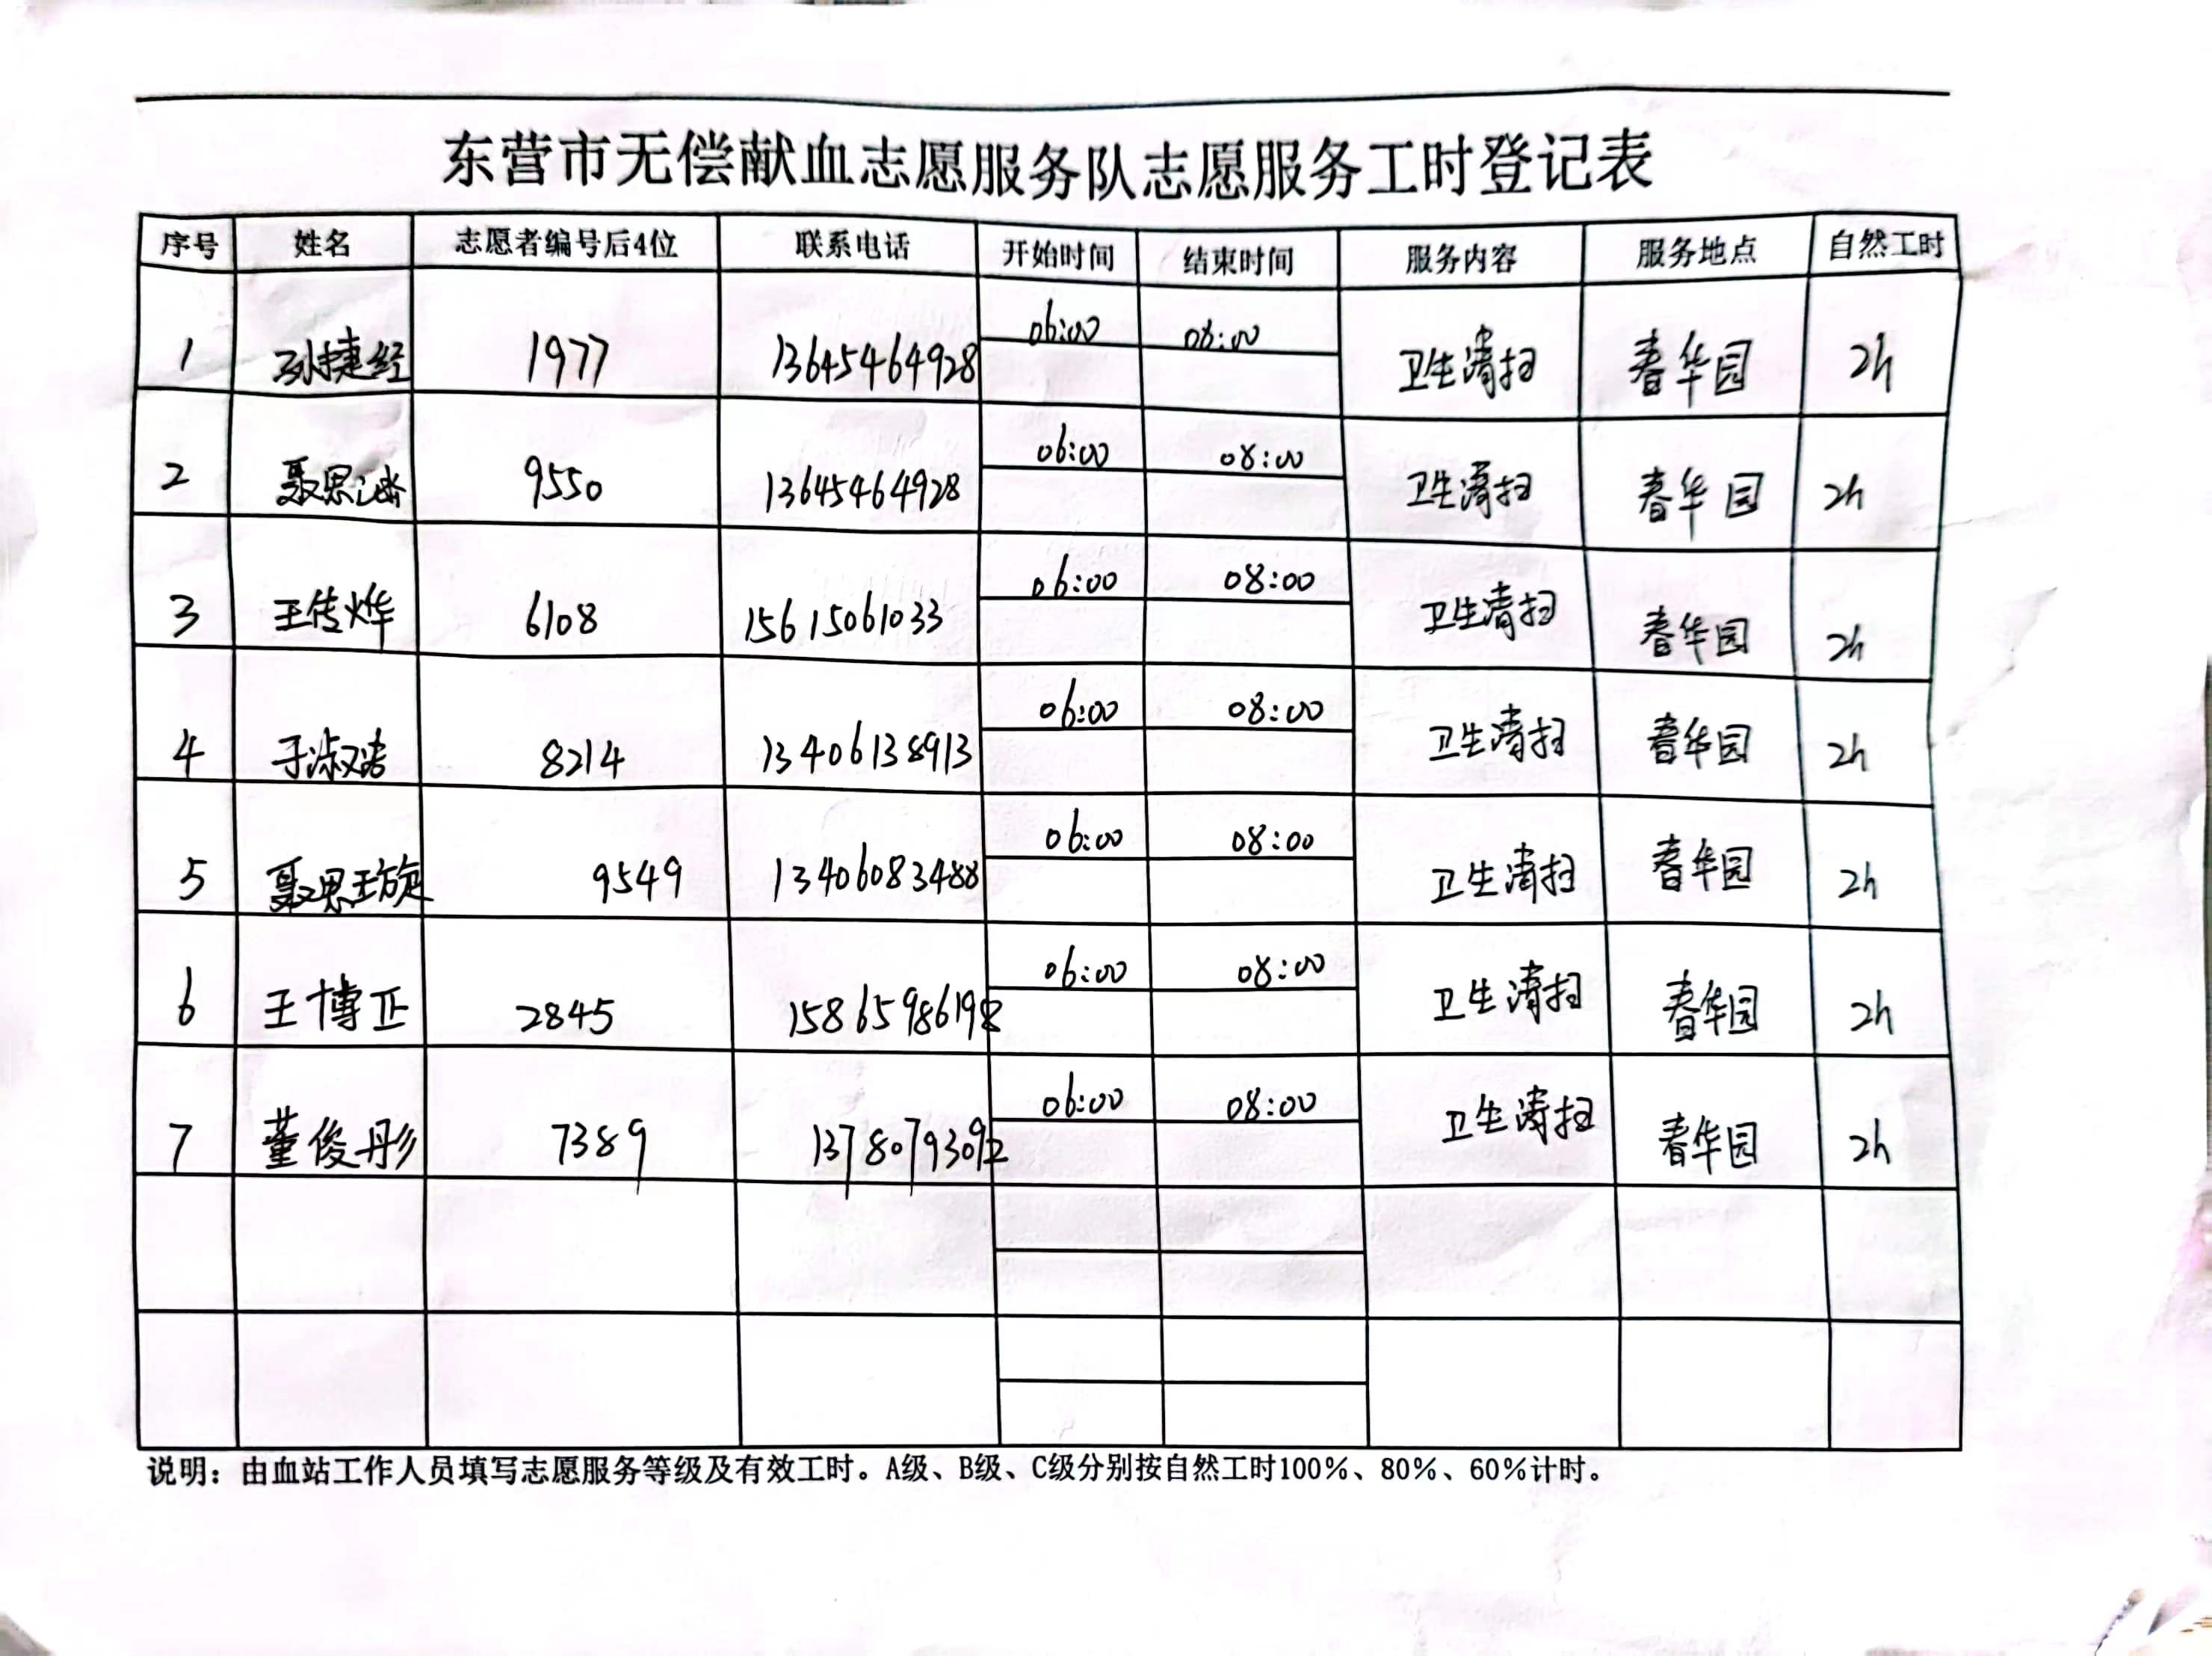 东营市无偿献血志愿服务队志愿服务工时登记表
序号 姓名 志愿者编号后4位 联系电话 开始时间 结束时间 服务内容 服务地点 自然工时
1 孙捷经 1977 13645464928 06:00 08:00 卫生清扫 春华园 2h
2 聂思涵 9550 13645464928 06:00 08:00 卫生清扫 春华园 2h
3 王传烨 6108 15615061033 06:00 08:00 卫生清扫 春华园 2h
4 于淑洁 8214 13406138913 06:00 08:00 卫生清扫 春华园 2h
5 聂思璇 9549 13406083488 06:00 08:00 卫生清扫 春华园 2h
6 王博正 2845 15865986198 06:00 08:00 卫生清扫 春华园 2h
7 董俊彤 7389 13780793092 06:00 08:00 卫生清扫 春华园 2h
说明：由血站工作人员填写志愿服务等级及有效工时。A级、B级、C级分别按自然工时100%、80%、60%计时。